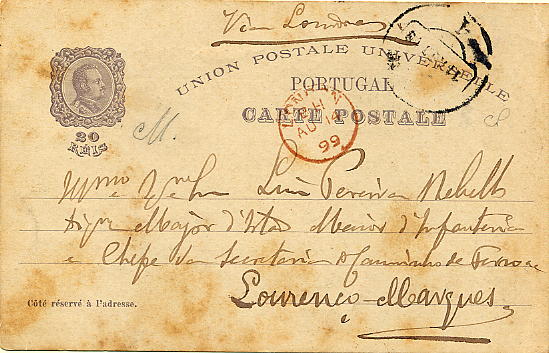 Via Londres
UNION POSTALE UNIVERSELLE
PORTUGAL
CARTE POSTALE
20
RÉIS
LONDON
AU 14
99
M.
Illmo Exmo Snr Luiz Pereira Rebello
Digno Major d'Estado Maior d'Infanteria
e Chefe da Secretaria do Caminho de Ferro de
Lourenço-Marques
Côté réservé à l'adresse.